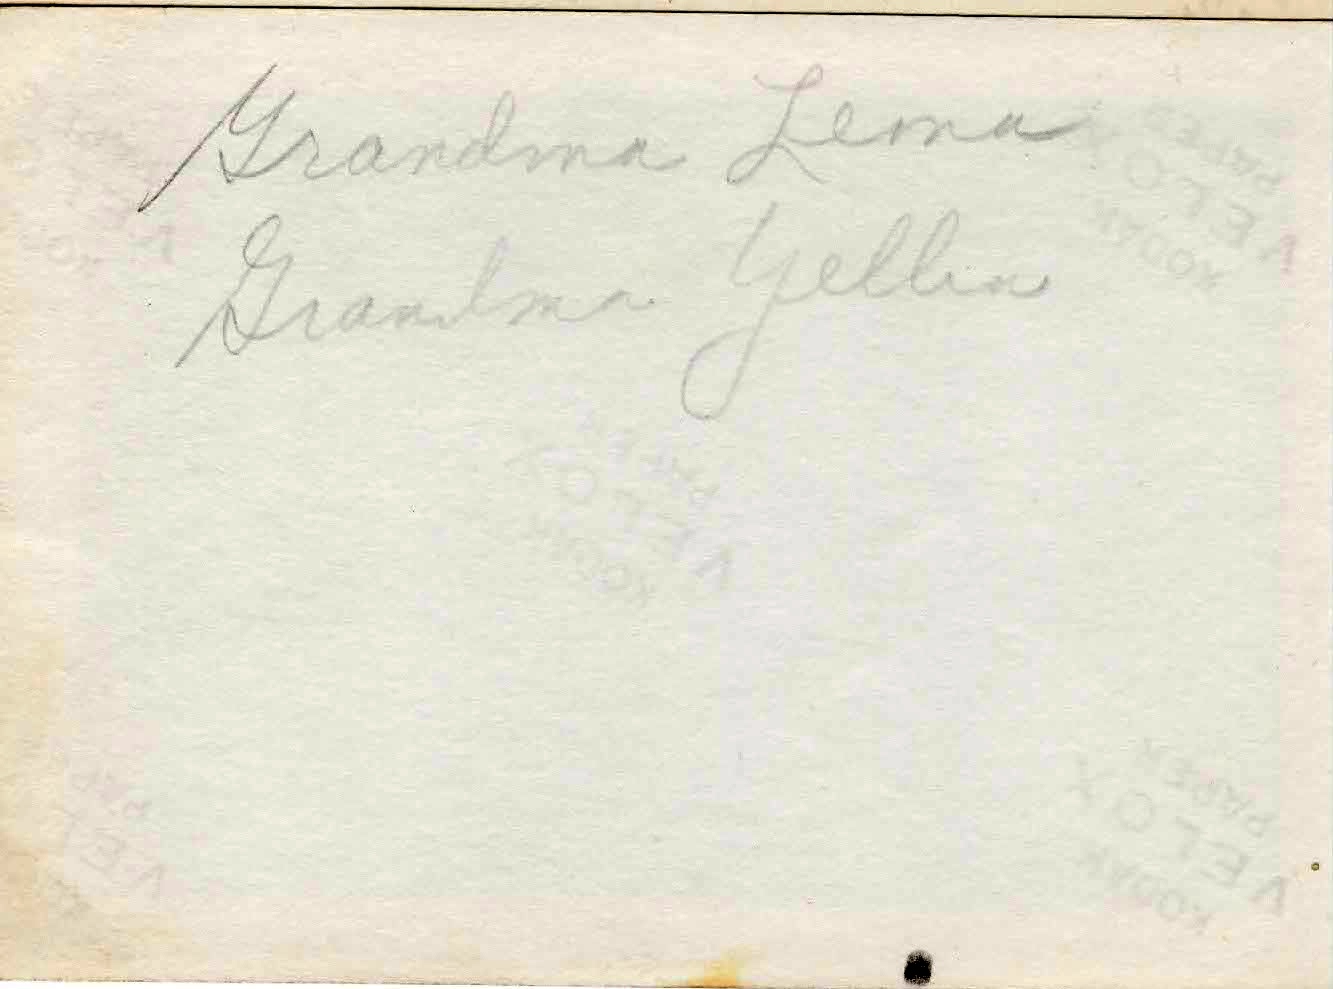 Grandma Lema
Grandma Yellin
VELOX
KODAK
PAPER
VELOX
KODAK
PAPER
VELOX
KODAK
PAPER